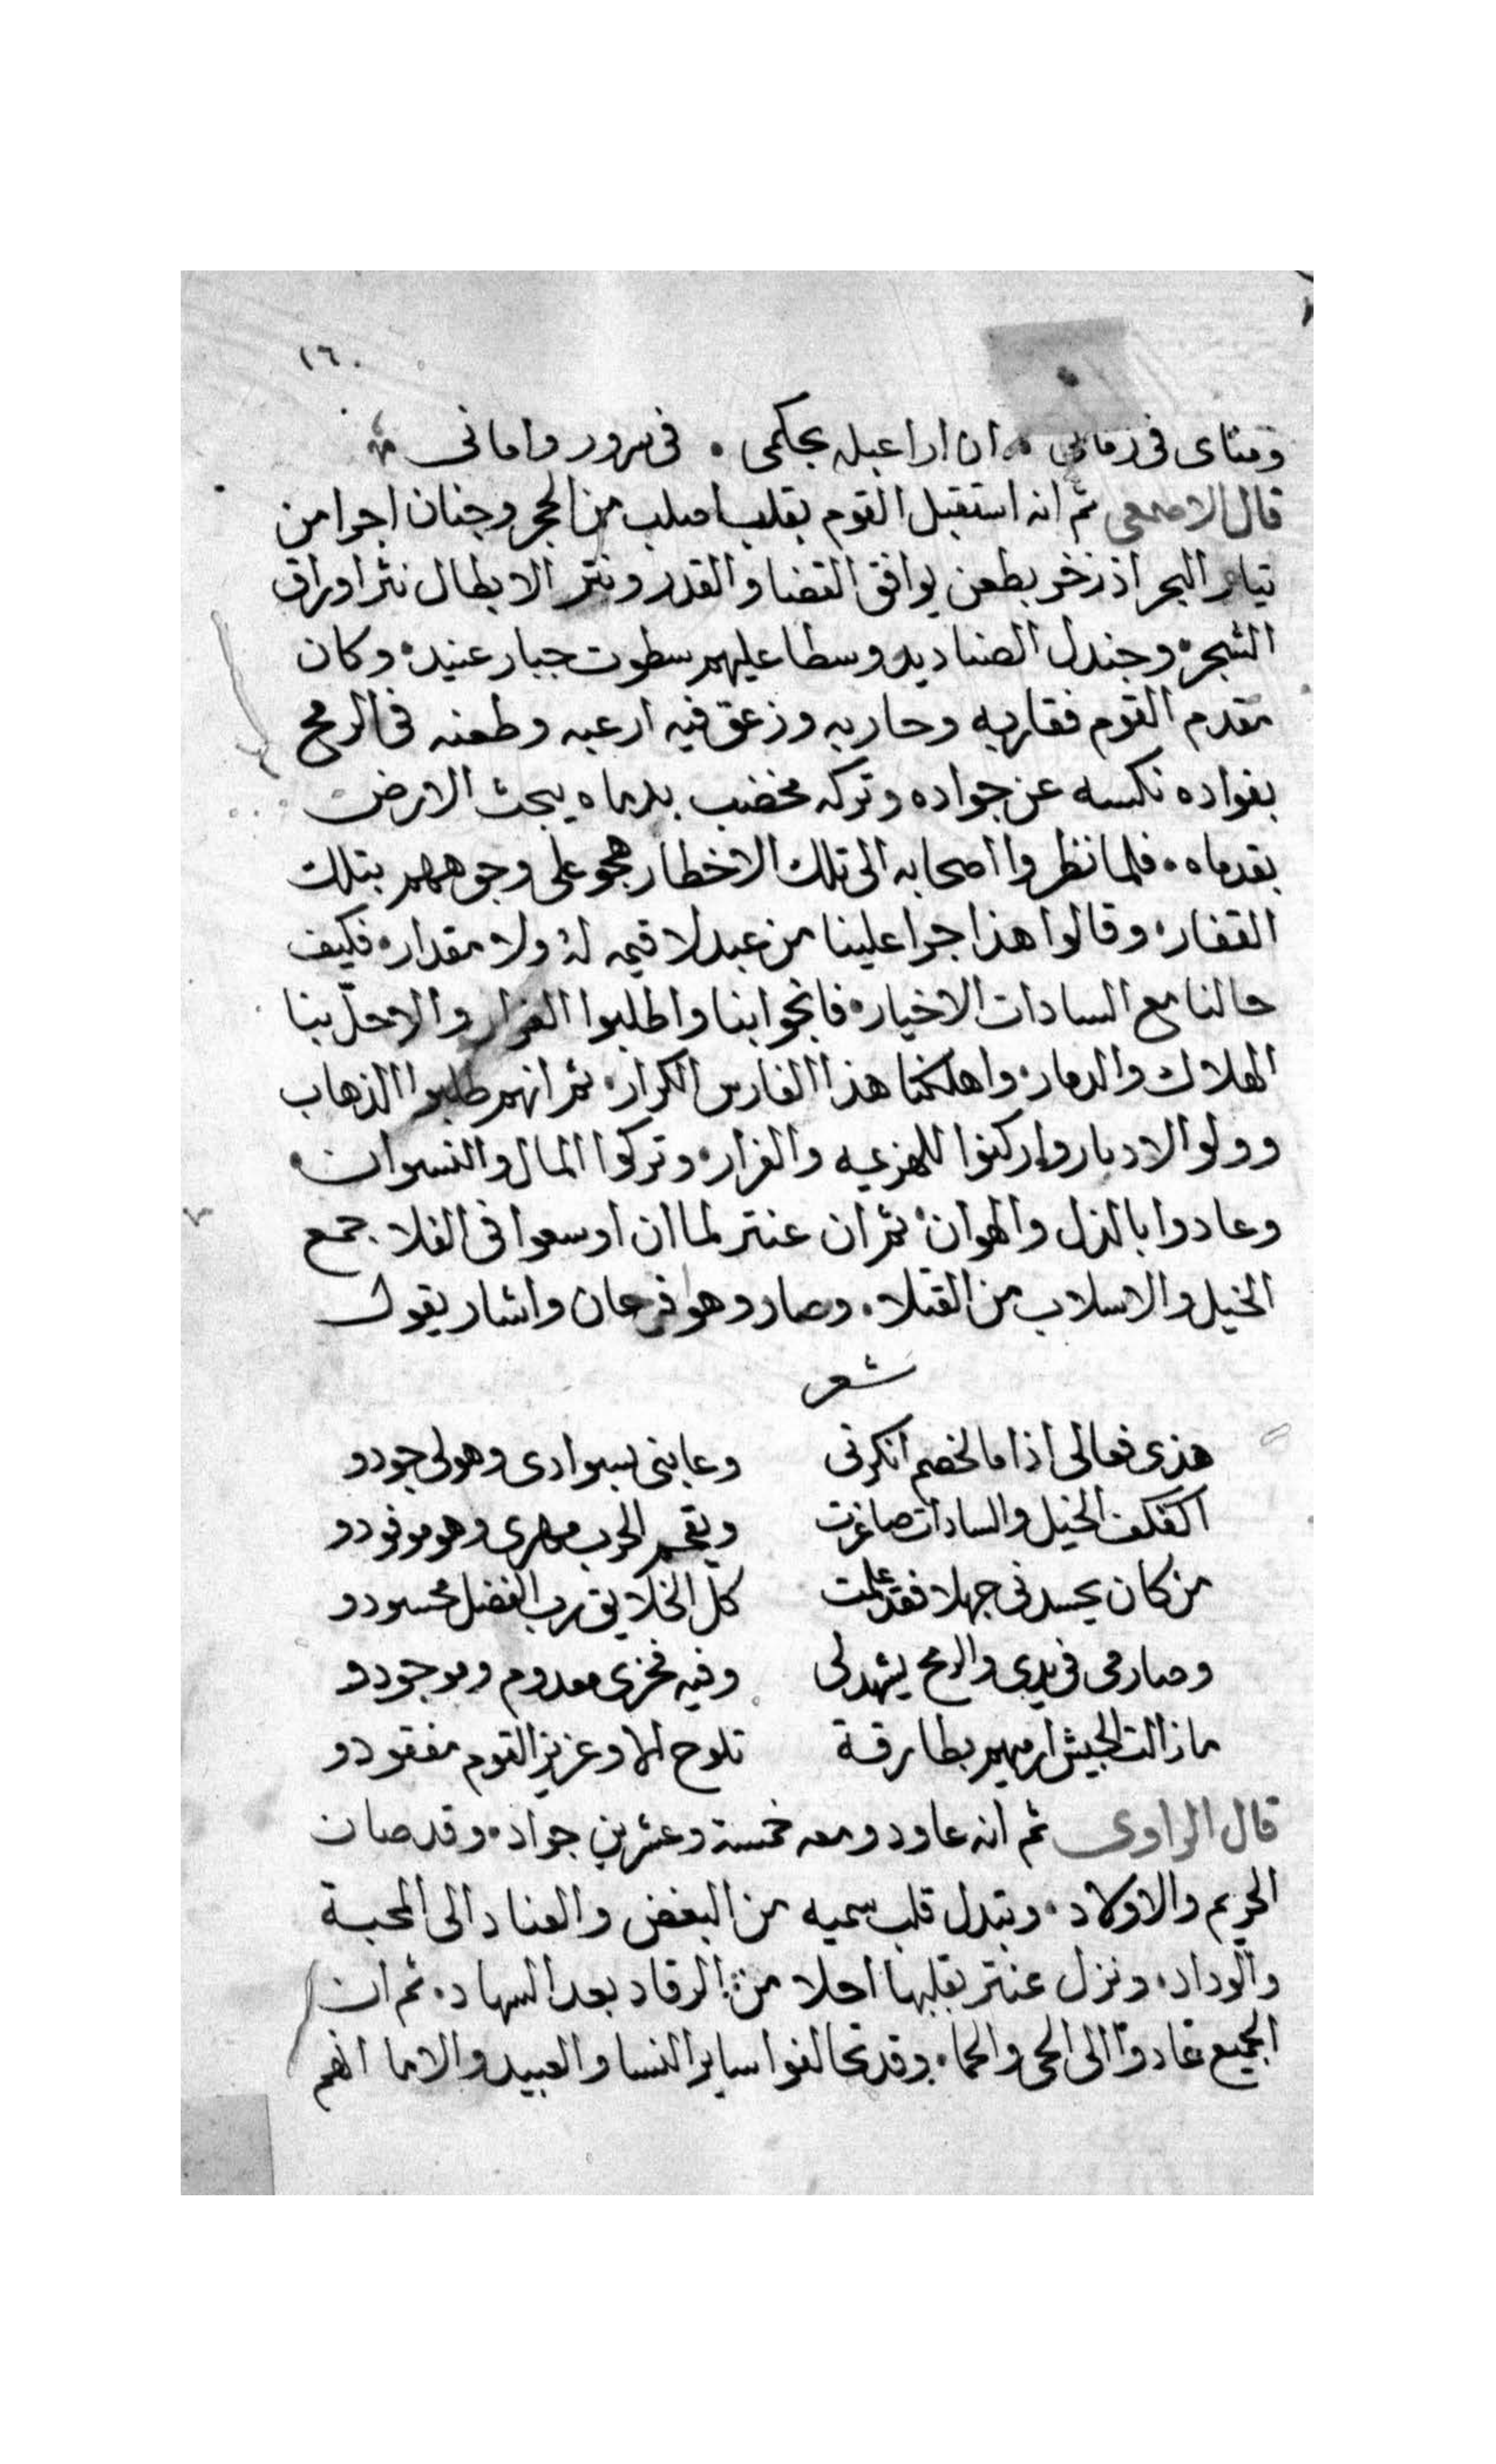 ١٦٠
ومناى فى زمانى ۰ ان ارا عبله بحكمى ۰ فى سرور وامانى
قال الاصمعى ثم انه استقبل القوم بقلب اصلب من الحجر وجنان اجرا من
تيار البحر اذ زخر بطعن يوافق القضا والقدر ونثر الابطال نثر اوراق
الشجر۰ وجندل الصناديد وسطا عليهم سطوت جبار عنيد۰ وكان
مقدم القوم فقاربه وحاربه وزعق فيه ارعبه وطعنه فى الرمح
بفواده نكسه عن جواده وتركه مخضب بدماه يبحث الارض
بقدماه ۰ فلما نظروا اصحابه الى تلك الاخطار هجوعلى وجوههم بتلك
القفار۰ وقالوا هذا جرا علينا من عبد لا قيمه له ولا مقدار۰ فكيف
حالنا مع السادات الاخيار۰ فانجوا بنا واطلبوا الفرار والا حلّ بنا
الهلاك والدمار۰ واهلكنا هذا الفارس الكرار۰ ثم انهم طلبوا الذهاب
وولوا الادبار واركنوا للهزيمه والفرار۰ وتركوا المال والنسوان۰
وعادوا بالذل والهوان۰ ثم ان عنتر لما ان اوسعوا فى الفلا جمع
الخيل والاسلاب من القتلا۰ وصار وهو فرحان واشار يقول
شعر
هذى فعالى اذا ما الخصم انكرنى وعابنى بسوادى وهو لى جودو
اكفكف الخيل والسادات صاغرت ويقحم الحرب مهرى وهو موفودو
من كان يحسدنى جهلا فقد علمت كلّ الخلايق رب الفضل محسودو
وصارمى فى يدى والرمح يشهد لى وفيه فخرى معدوم وموجودو
مازالت الجيش ارميهم بطارقة تلوح الا وعزيز القوم مفقودو
قال الراوى ثم انه عاود ومعه خمسة وعشرين جواد۰ وقد صان
الحريم والاولاد۰ وتبدل قلب سميه من البغض والعناد الى المحبة
والوداد۰ ونزل عنتر بقلبها احلا من الرقاد بعد السهاد۰ ثم ان
الجميع عادوا الى الحى والحما۰ وقد تحالفوا ساير النسا والعبيد والاما انهم